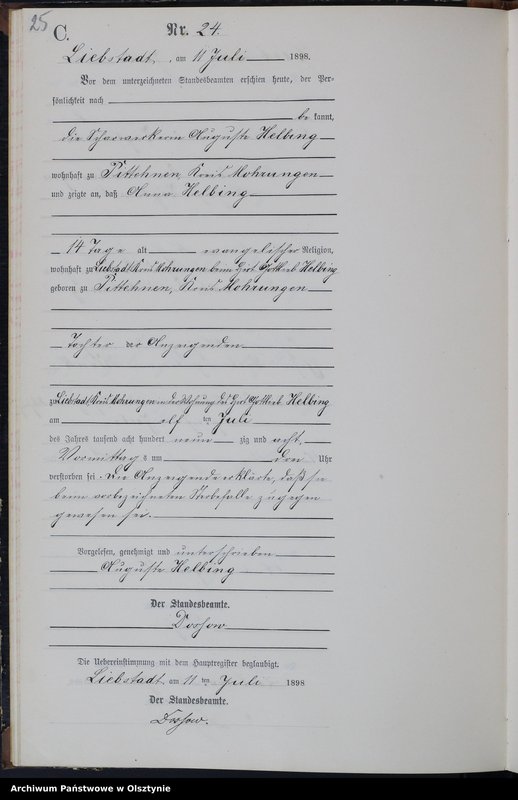 25
C.
Nr. 24.
Liebstadt, am 11 Juli 1898.
Vor dem unterzeichneten Standesbeamten erschien heute, der Per-
sönlichkeit nach
be kannt,
die Scharwerkerin Auguste Helbing
wohnhaft zu Pittehnen, Kreis Mohrungen
und zeigte an, daß Anna Helbing
14 Tage alt evangelischer Religion,
wohnhaft zu Liebstadt Kreis Mohrungen beim Hirt Gottlieb Helbing
geboren zu Pittehnen, Kreis Mohrungen
Tochter der Anzeigenden
zu Liebstadt Kreis Mohrungen in der Wohnung des Hirt Gottlieb Helbing
am elf ten Juli
des Jahres tausend acht hundert neun zig und acht,
Vormittag s um drei Uhr
verstorben sei. Die Anzeigende erklärte, daß sie
beim vorbezeichneten Sterbefalle zugegen
gewesen sei.
Vorgelesen, genehmigt und unterschrieben
Auguste Helbing
Der Standesbeamte.
Die Uebereinstimmung mit dem Hauptregister beglaubigt.
Liebstadt, am 11 ten Juli 1898
Der Standesbeamte.
Archiwum Państwowe w Olsztynie